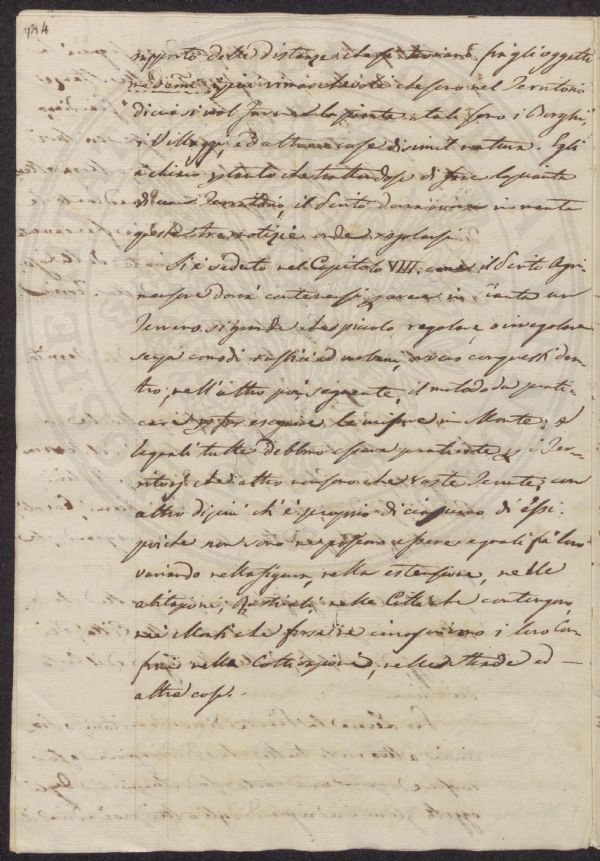 rapporto delle distanze che si trovano fra gli oggetti
medemi, i più rimarchevoli che sono nel Territorio
di cui si vuol fare la pianta, tali sono i Borghi,
i Villaggi, ed altre cose di simil natura. Egli
è chiaro pertanto che trattandosi di fare la pianta
di un Territorio, il Perito dovrà avere in mente
queste tre notizie onde regolarsi.
Si è veduto nel Capitolo VIII come il Perito Agri-
mensore dovrà contenersi per porre in pianta un
Terreno, sì grande che piccolo regolare, o irregolare
senza comodi rustici ed urbani, ovvero con questi den-
tro, nell'altro poi seguente, il metodo da prati-
carsi per eseguire le misure in Monte; e
le quali tutte debbono essere praticate per i Ter-
ritorj che altro non sono che vaste Tenute, con
altro di più ch'è proprio di ciascuno di essi
poiche non sono ne possono essere eguali frà loro
variando nella figura, nella estensione, nelle
abitazioni, Rusticali, nelle Colture che contengono,
nei Monti che formano i loro Con-
fini nella Coltivazione, nelle strade ed
altre cose.